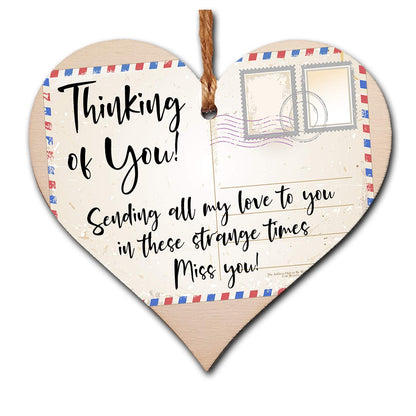 Thinking
of You!
Sending all my love to you
in these strange times
Miss you!